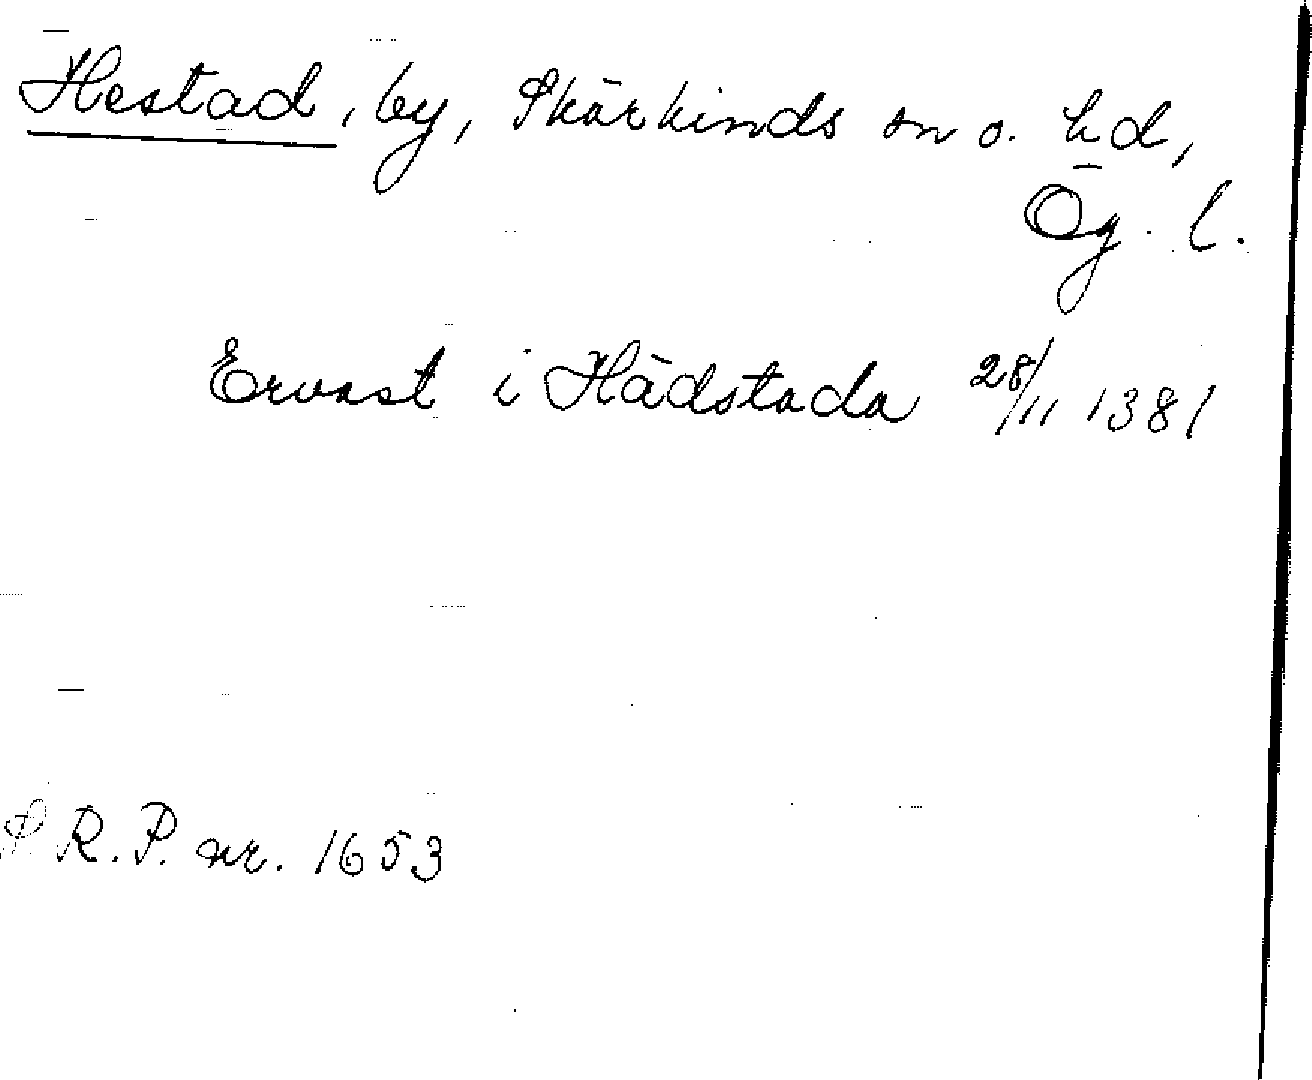 Hestad, by, Skärkinds sn o. hd,
Ög. l.
Ervast i Hädstada 28/11 1381
S R. P. nr. 1653